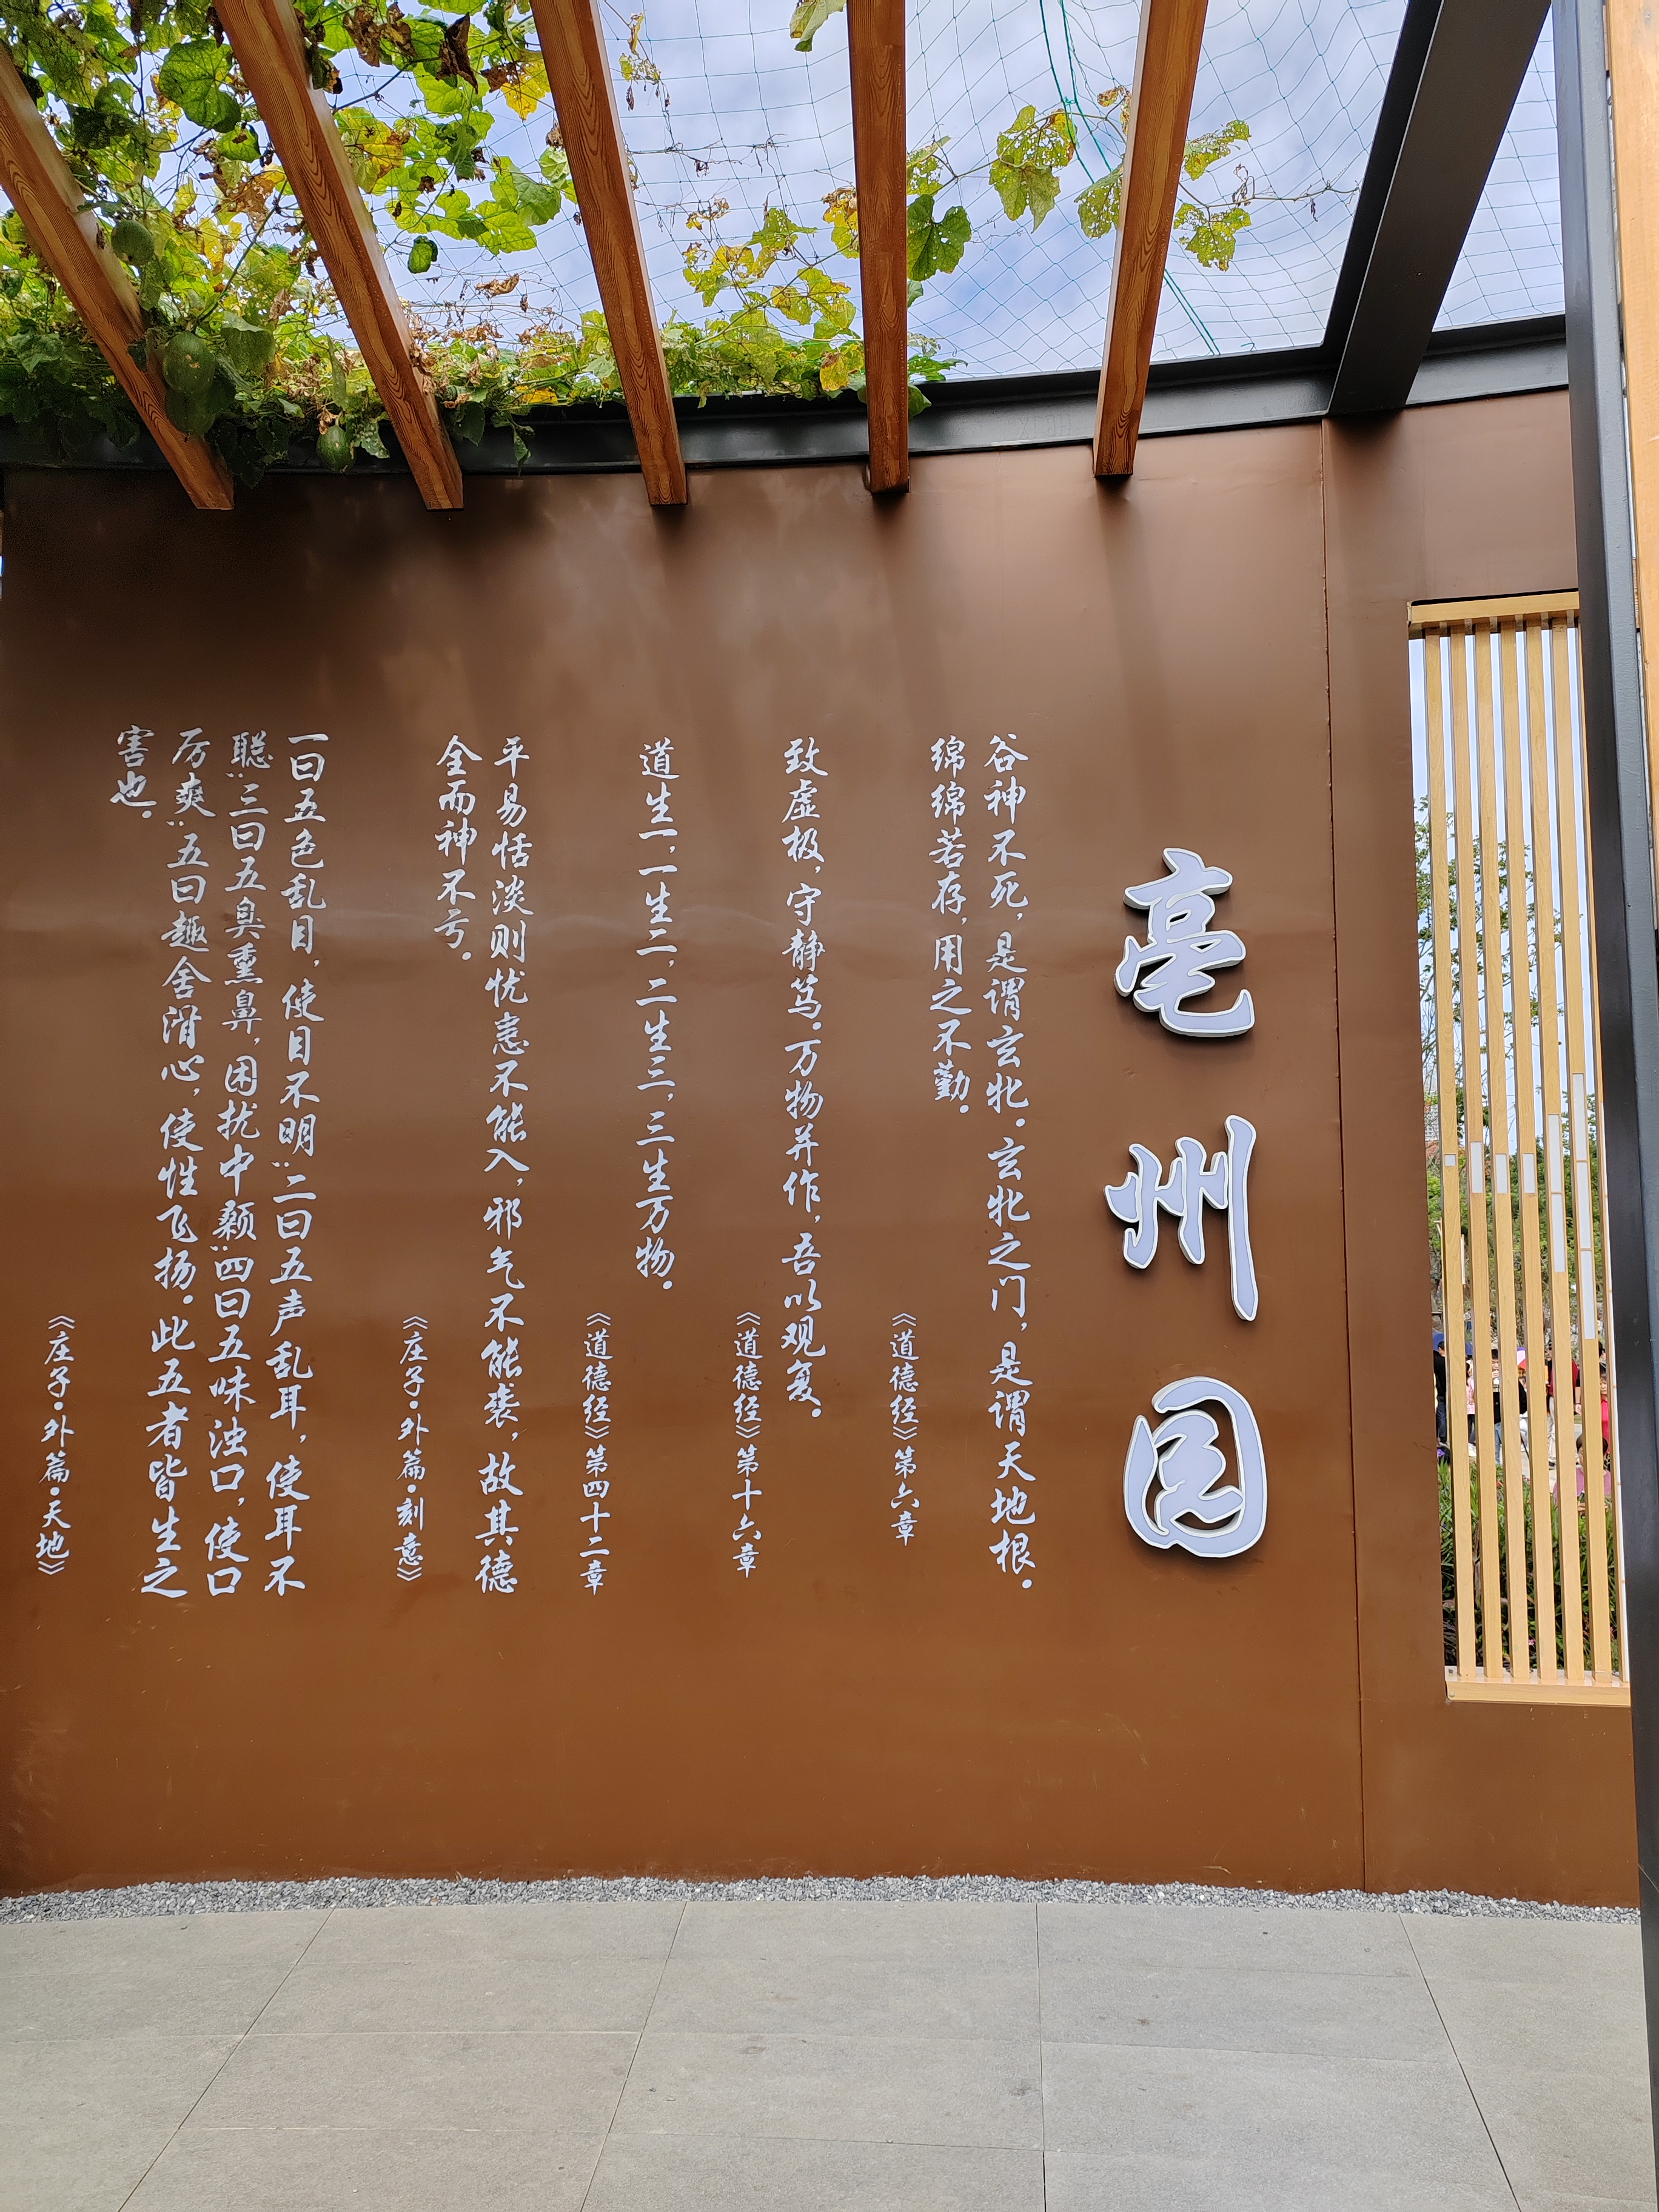 亳州园
谷神不死,是谓玄牝。玄牝之门,是谓天地根。
绵绵若存,用之不勤。
《道德经》第六章
致虚极,守静笃。万物并作,吾以观复。
《道德经》第十六章
道生一,一生二,二生三,三生万物。
《道德经》第四十二章
平易恬淡则忧恚不能入,邪气不能袭,故其德
全而神不亏。
《庄子·外篇·刻意》
一曰五色乱目,使目不明;二曰五声乱耳,使耳不
聪;三曰五臭熏鼻,困扰中颡;四曰五味浊口,使口
厉爽;五曰趣舍滑心,使性飞扬。此五者皆生之
害也。
《庄子·外篇·天地》